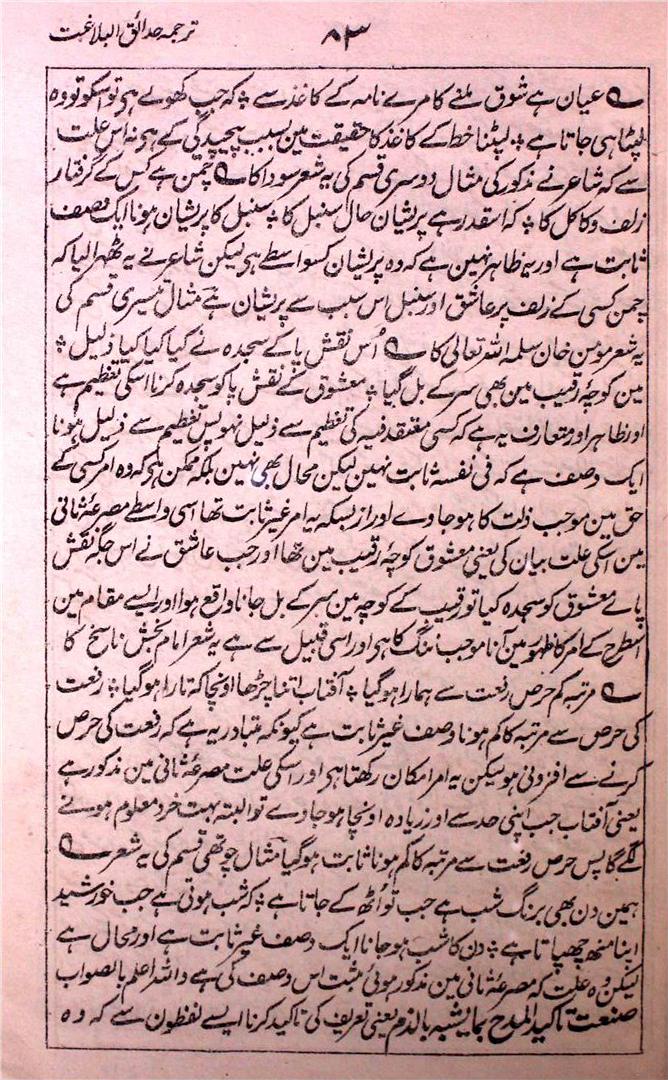 ترجمہ حدائق البلاغت
۸۳
؎ عیان ہے شوق ملنے کا مرے نامہ کے کاغذ سے ٭ کہ جب کھولے ہی تو اسکو تو وہ
لپٹا ہی جاتا ہے ٭ لپٹنا خط کے کاغذ کا حقیقت مین بسبب پیچیدگی کے ہی نہ اس علت
سے کہ شاعر نے مذکور کی مثال دوسری قسم کی یہ شعر سودا کا ؎ چمن ہے کس کے گرفتار
زلف و کاکل کا ٭ کہ اسقدر ہے پریشان حال سنبل کا ٭ سنبل کا پریشان ہونا ایک وصف
ثابت ہے اور یہ ظاہر نہین ہے کہ وہ پریشان کسواسطے ہی لیکن شاعر نے یہ ٹھہرا لیا کہ
چمن کسی کے زلف پر عاشق اور سنبل اس سبب سے پریشان ہے مثال تیسری قسم کی
یہ شعر مومن خان سلمہ اللہ تعالی کا ؎ اُس نقش پا کے سجدہ نے کیا کیا کیا ذلیل ٭
مین کوچۂ رقیب مین بھی سر کے بل گیا ٭ معشوق کے نقش پا کو سجدہ کرنا اسکی تعظیم ہے
اور ظاہر اور متعارف یہ ہے کہ کسی معتقد فیہ کی تعظیم سے ذلیل نہو پس تعظیم سے ذلیل ہونا
ایک وصف ہے کہ فی نفسہ ثابت نہین لیکن محال بھی نہین بلکہ ممکن ہی کہ وہ امر کسی کے
حق مین موجب ذلت کا ہو جاوے اور از بسکہ یہ امر غیر ثابت تھا اسی واسطے مصرعۂ ثانی
مین اسکی علت بیان کی یعنی معشوق کوچۂ رقیب مین تھا اور جب عاشق نے اس جگہ نقش
پائے معشوق کو سجدہ کیا تو رقیب کے کوچہ مین سر کے بل جانا واقع ہوا اور ایسے مقام مین
اسطرح کے امر کا ظہور مین آنا موجب ننگ کا ہی اور اسی قبیل سے ہے یہ شعر امام بخش ناسخ کا
؎ مرتبہ کم حرص رفعت سے ہمارا ہو گیا ٭ آفتاب اتنا چڑھا اونچا کہ تارا ہو گیا ٭ رفعت
کی حرص سے مرتبہ کا کم ہونا وصف غیر ثابت ہے کیونکہ متبادر یہ ہے کہ رفعت کی حرص
کرنے سے افزونی ہو لیکن یہ امر امکان رکھتا ہی اور اسکی علت مصرعۂ ثانی مین مذکور ہے
یعنی آفتاب جب اپنی حد سے اور زیادہ اونچا ہو جاوے تو البتہ بہت خرد معلوم ہونے
لگے گا پس حرص رفعت سے مرتبہ کا کم ہونا ثابت ہو گیا مثال چوتھی قسم کی یہ شعر ؎
ہمین دن بھی برنگ شب ہے جب تو اُٹھ کے جاتا ہے ٭ کہ شب ہوتی ہے جب خورشید
اپنا منھ چھپاتا ہے ٭ دن کا شب ہو جانا ایک وصف غیر ثابت ہے اور محال ہے
لیکن وہ علت کہ مصرعۂ ثانی مین مذکور ہوئی مثبت اس وصف کی ہے واللہ اعلم بالصواب
صنعت تاکید المدح بما یشبہ بالذم یعنی تعریف کی تاکید کرنا ایسے لفظون سے کہ وہ